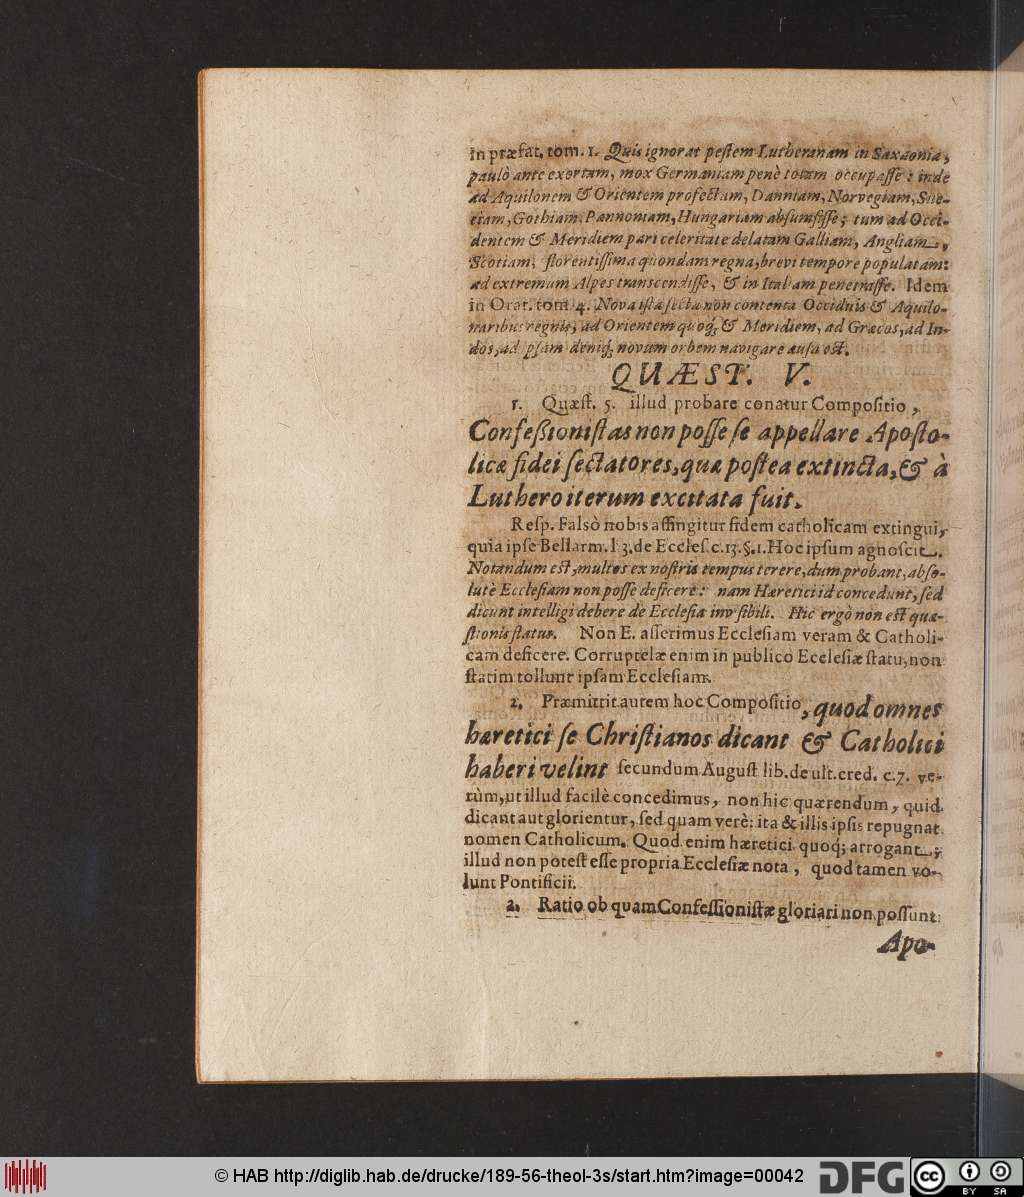 in præfat. tom. 1. Quis ignorat peſtem Lutheranam in Saxonia,
paulò ante exortam, mox Germaniam penè totam occupaſſe: inde
ad Aquilonem & Orientem profectam, Danniam, Norvegiam, Sue-
ciam, Gothiam, Pannoniam, Hungariam abſumſiſſe; tum ad Occi-
dentem & Meridiem pari celeritate delatam Galliam, Angliam,
Scotiam, florentiſſima quondam regna, brevi tempore populatam:
ad extremum Alpes transcendiſſe, & in Italiam penetraſſe. Idem
in Orat. tom. 4. Nova iſta ſecta non contenta Occiduis & Aquilo-
naribus regnis, ad Orientem quoq; & Meridiem, ad Græcos, ad In-
dos, ad ipſam deniq; novum orbem navigare auſa est.
QUÆST. V.
1. Quæſt. 5. illud probare conatur Compoſitio,
Confeßioniſtas non poſſe ſe appellare Apoſto-
licæ fidei ſectatores, quæ poſtea extincta, & à
Luthero iterum excitata fuit.
Reſp. Falsò nobis affingitur fidem catholicam extingui,
quia ipſe Bellarm. l 3. de Eccleſ. c. 13. §. 1. Hoc ipſum agnoſcit.
Notandum est, multos ex nostris tempus terere, dum probant, abſo-
lutè Eccleſiam non poſſe deficere: nam Hæretici id concedunt, ſed
dicunt intelligi debere de Eccleſia inviſibili. Hic ergò non est quæ-
ſtionis ſtatus. Non E. aſſerimus Eccleſiam veram & Catholi-
cam deficere. Corruptelæ enim in publico Eccleſiæ ſtatu, non
ſtatim tollunt ipſam Eccleſiam.
2. Præmittit autem hoc Compoſitio, quod omnes
hæretici ſe Chriſtianos dicant & Catholici
haberi velint ſecundum Auguſt lib. de ult. cred. c. 7. ve-
rùm, ut illud facilè concedimus, non hic quærendum, quid
dicant aut glorientur, ſed quam verè: ita & illis ipſis repugnat
nomen Catholicum. Quod enim hæretici quoq; arrogant,
illud non poteſt eſſe propria Eccleſiæ nota, quod tamen vo-
lunt Pontificii.
2. Ratio ob quam Confeſſioniſtæ gloriari non poſſunt
Apo-
© HAB http://diglib.hab.de/drucke/189-56-theol-3s/start.htm?image=00042
DFG
cc BY SA